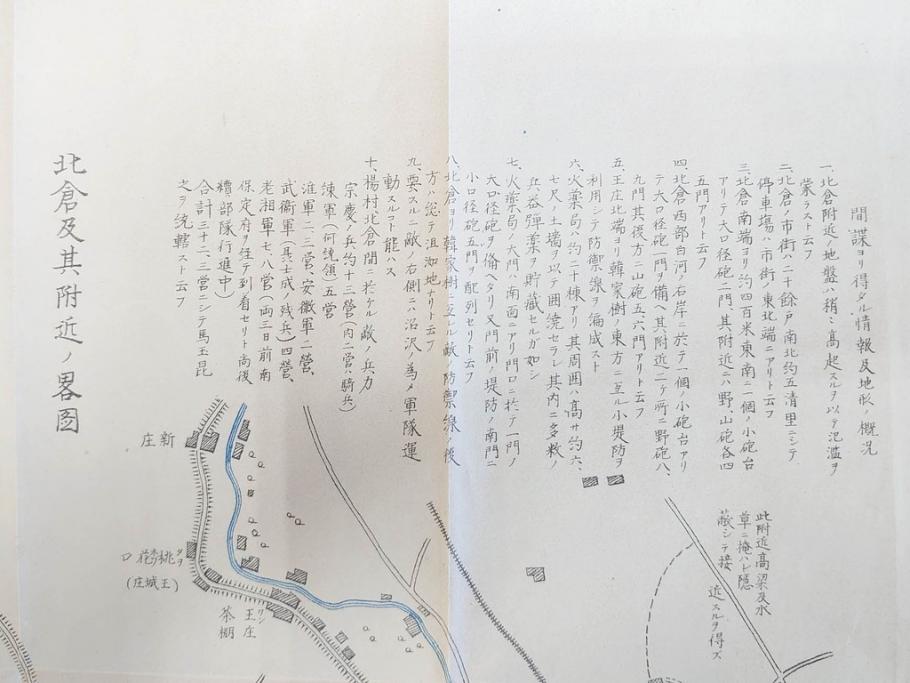 間諜ヨリ得タル情報及地形ノ概況
一、北倉附近ノ地盤ハ稍々高起スルヲ以テ氾濫ヲ
蒙ラスト云フ
二、北倉ノ市街ハ二十餘戸南北約五清里ニシテ
停車塲ハ市街ノ東北端ニアリト云フ
三、北倉南端ヨリ約四百米東南ニ一個ノ小砲台
アリテ大口径砲二門、其附近ニハ野、山砲各四
五門アリト云フ
四、北倉西部白河ノ右岸ニ於テ一個ノ小砲台アリ
テ大口径砲一門ヲ備ヘ其附近二ヶ所ニ野砲八、
九門其後方ニ山砲五、六門アリト云フ
五、王庄北端ヨリ韓家樹ノ東方ニ亙ル小堤防ヲ
利用シテ防禦線ヲ編成スト
六、火藥局ハ約三十棟アリ其周囲ハ高サ約六、
七尺ノ土墻ヲ以テ囲繞セラレ其内ニ多数ノ
兵器彈藥ヲ貯蔵セルガ如シ
七、火藥局ノ大門ハ南面ニアリ門口ニ於テ一門ノ
大口径砲ヲ備ヘタリ又門前ノ堤防ノ南門ニ
小口径砲五門ヲ配列セリト云フ
八、北倉ヨリ韓家樹ニ亙レル敵ノ防禦線ノ後
方ハ総テ沮洳地ナリト云フ
九、要スルニ敵ノ右側ニハ沼沢ノ為メ軍隊運
動スルコト能ハス
十、楊村北倉間ニ於ケル敵ノ兵力
宗慶ノ兵約十三営(内二営ハ騎兵)
練軍(何統領)五営
淮軍二、三営、安徽軍二營、
武衛軍(聶士成ノ残兵)四營、
老湘軍七、八營(両三日前南
保定府ヲ経テ到着セリト尚後
續部隊行進中)
合計三十二、三営ニシテ馬玉昆
之ヲ統轄スト云フ
北倉及其附近ノ畧図
此附近高梁及水
草ニ掩ハレ隠
蔽シテ接
近スルヲ得ズ
新庄
桃花口
(王城庄)
王庄
茶棚